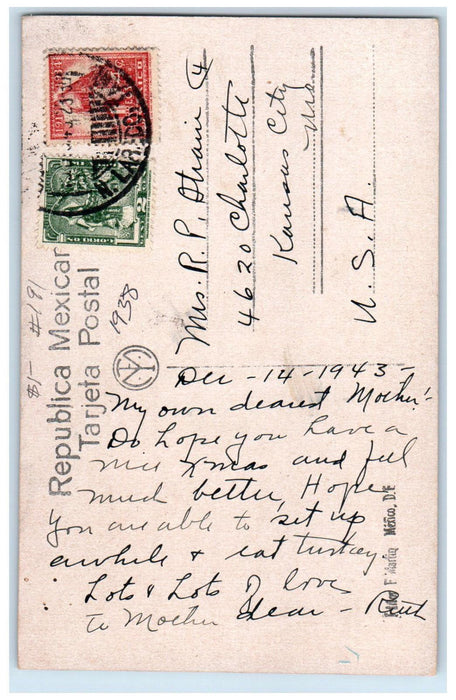 Mrs. R. P. Ahrane
4620 Charlotte
Kansas City
Mo
U. S. A.
Republica Mexican
Tarjeta Postal
$1- #191
1938
Dec -14-1943-
My own dearest Mother!-
Do hope you have a
nice Xmas and feel
much better, Hope
you are able to set up
awhile & eat turkey.
Lots & Lots of love
to Mother dear - Ruth
F Martin México, D.F.
N. LAREDO
CORREOS